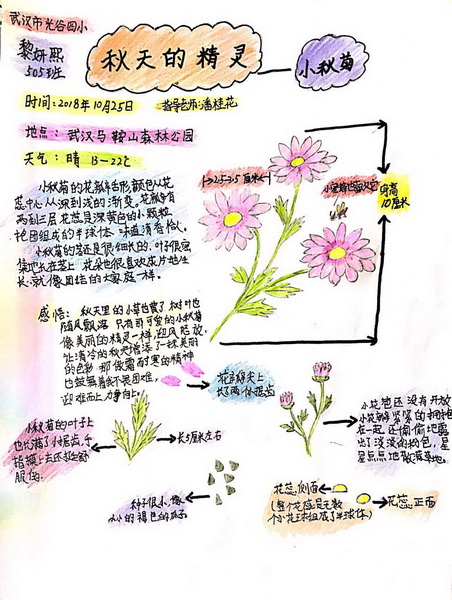 武汉市光谷四小
黎妍熙
505班
秋天的精灵
小秋菊
时间:2018年10月25日
指导老师:潘桂花
地点:武汉马鞍山森林公园
天气:晴 13-22℃
小秋菊的花瓣呈粉色,颜色从花
蕊中心从深到浅的渐变,花瓣有
两到三层,花蕊是深黄色的小颗粒
抱团组成的半球体,味道清香怡人。
小秋菊的茎还是很细长的,叶子很密
集地长在茎上,花朵也很喜欢成片地生
长,就像团结的大家庭一样。
2.5-3.5厘米
小蜜蜂也喜欢它
身高
10厘米
感悟:秋天里的小草也黄了,树叶也
随风飘落,只有可爱的小秋菊
像美丽的精灵一样,迎风怒放,
让清冷的秋天增添了一抹美丽
的色彩,那傲霜耐寒的精神
也鼓舞着我不畏困难,
迎难而上,力争向上。
花瓣尖上
长了两个小锯齿
小秋菊的叶子上
也长满了小锯齿,手
指摸上去还挺舒
服的。
长5厘米左右
小花苞还没有开放
小花瓣紧紧的拥抱
在一起,还偷偷地露
出了淡淡的粉色,星
星点点地散落草地。
种子很小,像
小小的褐色的瓜子
花蕊 侧面
花蕊 正面